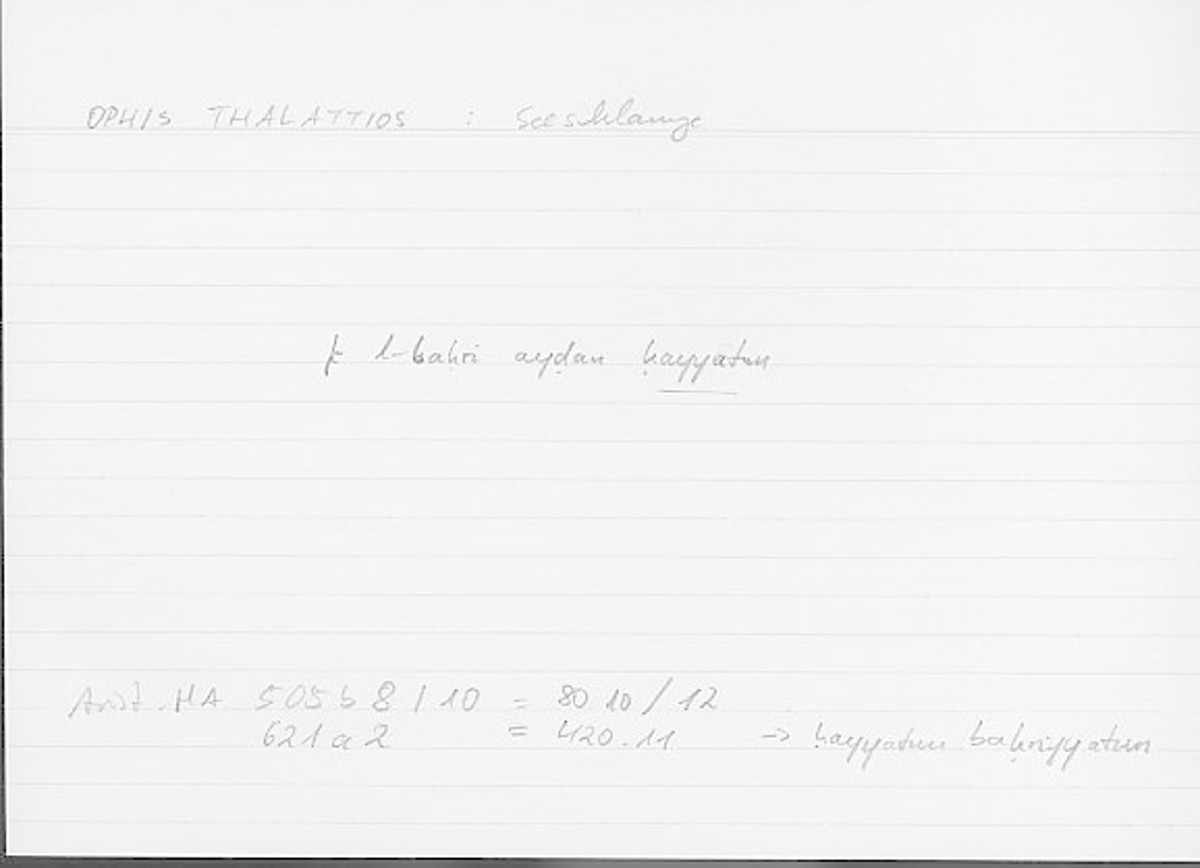 OPHIS THALATTIOS : Seeschlange
f l-baḥri ayḍan ḥayyatun
Arist. HA 505 b 8 / 10 = 80 10 / 12
621 a 2 = 420.11 → ḥayyatun baḥriyyatun